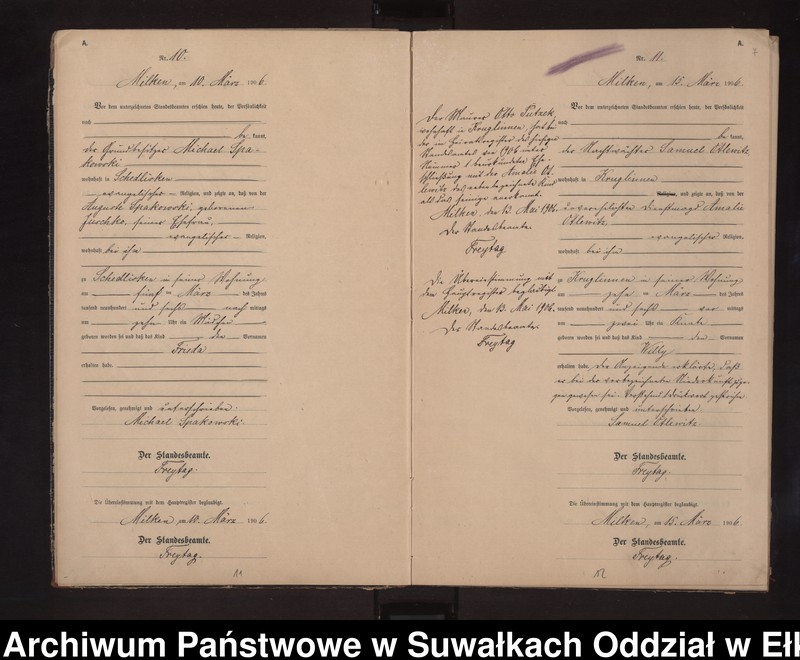 A.
Nr. 10.
Milken, am 10. März 1906.
Vor dem unterzeichneten Standesbeamten erschien heute, der Persönlichkeit
nach
be kannt,
der Grundbesitzer Michael Spa-
kowski
wohnhaft in Schedlisken
evangelischer Religion, und zeigte an, daß von der
Auguste Spakowski, geborenen
Juschko, seiner Ehefrau,
evangelischer Religion,
wohnhaft bei ihm
zu Schedlisken in seiner Wohnung
am fünf ten März des Jahres
tausend neunhundert und sechs nach mittags
um zehn Uhr ein Mädchen
geboren worden sei und daß das Kind den Vornamen
Frieda
erhalten habe.
Vorgelesen, genehmigt und unterschrieben
Michael Spakowski.
Der Standesbeamte.
Freytag.
Die Übereinstimmung mit dem Hauptregister beglaubigt.
Milken, am 10. März 1906.
Der Standesbeamte.
Freytag.
11
Der Maurer Otto
wohnhaft in Kruglinnen, hat bei
der im Heiratsregister des hiesigen
Standesamts pro 1906 unter
Nummer beurkundeten Ehe-
schließung mit der Amalie Ot-
lewitz das nebenbezeichnete Kind
als das seinige anerkannt.
Milken, den 13. Mai 1906.
Der Standesbeamte.
Freytag
Die Übereinstimmung mit
dem Hauptregister beglaubigt.
Milken, den 13. Mai 1906.
Der Standesbeamte.
Freytag
A.
7
Nr. 11.
Milken, am 15. März 1906.
Vor dem unterzeichneten Standesbeamten erschien heute, der Persönlichkeit
nach
be kannt,
der Nachtwächter Samuel Otlewitz,
wohnhaft in Kruglinnen
Religion, und zeigte an, daß von der
unverehelichten Dienstmagd Amalie
Otlewitz,
evangelischer Religion,
wohnhaft bei ihm
zu Kruglinnen in seiner Wohnung
am zehn ten März des Jahres
tausend neunhundert und sechs vor mittags
um zwei Uhr ein Knabe
geboren worden sei und daß das Kind den Vornamen
Willy
erhalten habe. Der Anzeigende erklärte, daß
er bei der vorbezeichneten Niederkunft zuge-
gen gewesen sei. Vorstehend 1 Druckwort gestrichen
Vorgelesen, genehmigt und unterschrieben
Samuel Otlewitz.
Der Standesbeamte.
Freytag.
Die Übereinstimmung mit dem Hauptregister beglaubigt.
Milken, am 15. März 1906.
Der Standesbeamte.
Freytag.
12
Archiwum Państwowe w Suwałkach Oddział w Ełk